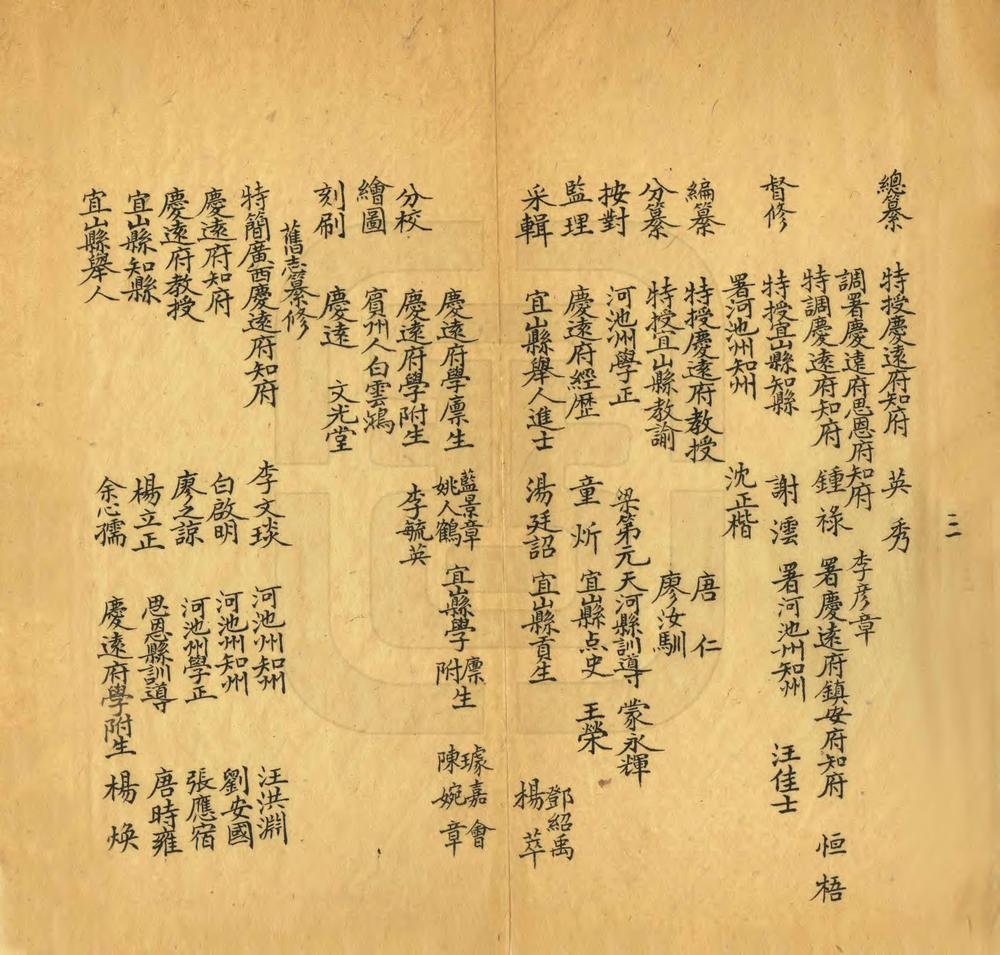 二一
總纂　特授慶遠府知府　英秀
調署慶遠府思恩府知府　李彦章
特調慶遠府知府　鍾祿　署慶遠府鎮安府知府　恒梧
督修　特授宜山縣知縣　謝澐　署河池州知州　汪佳士
署河池州知州　沈正楷
編纂　特授慶遠府教授　唐仁
分纂　特授宜山縣教諭　廖汝馴
按對　河池州學正　梁第元　天河縣訓導　蒙永輝
監理　慶遠府經歷　童炘　宜山縣点史　王榮
采輯　宜山縣舉人進士　湯廷詔　宜山縣貢生　鄧紹禹　楊萃
慶遠府學廪生　藍景章　姚人鶴　宜山縣學廪附生　璩嘉會　陳婉章
分校　慶遠府學附生　李毓英
繪圖　賓州人白雲鴻
刻刷　慶遠　文光堂
舊志纂修
特簡廣西慶遠府知府　李文琰　河池州知州　汪洪淵
慶遠府知府　白啟明　河池州知州　劉安國
慶遠府教授　廖之諒　河池州學正　張應宿
宜山縣知縣　楊立正　思恩縣訓導　唐時雍
宜山縣舉人　余心孺　慶遠府學附生　楊煥